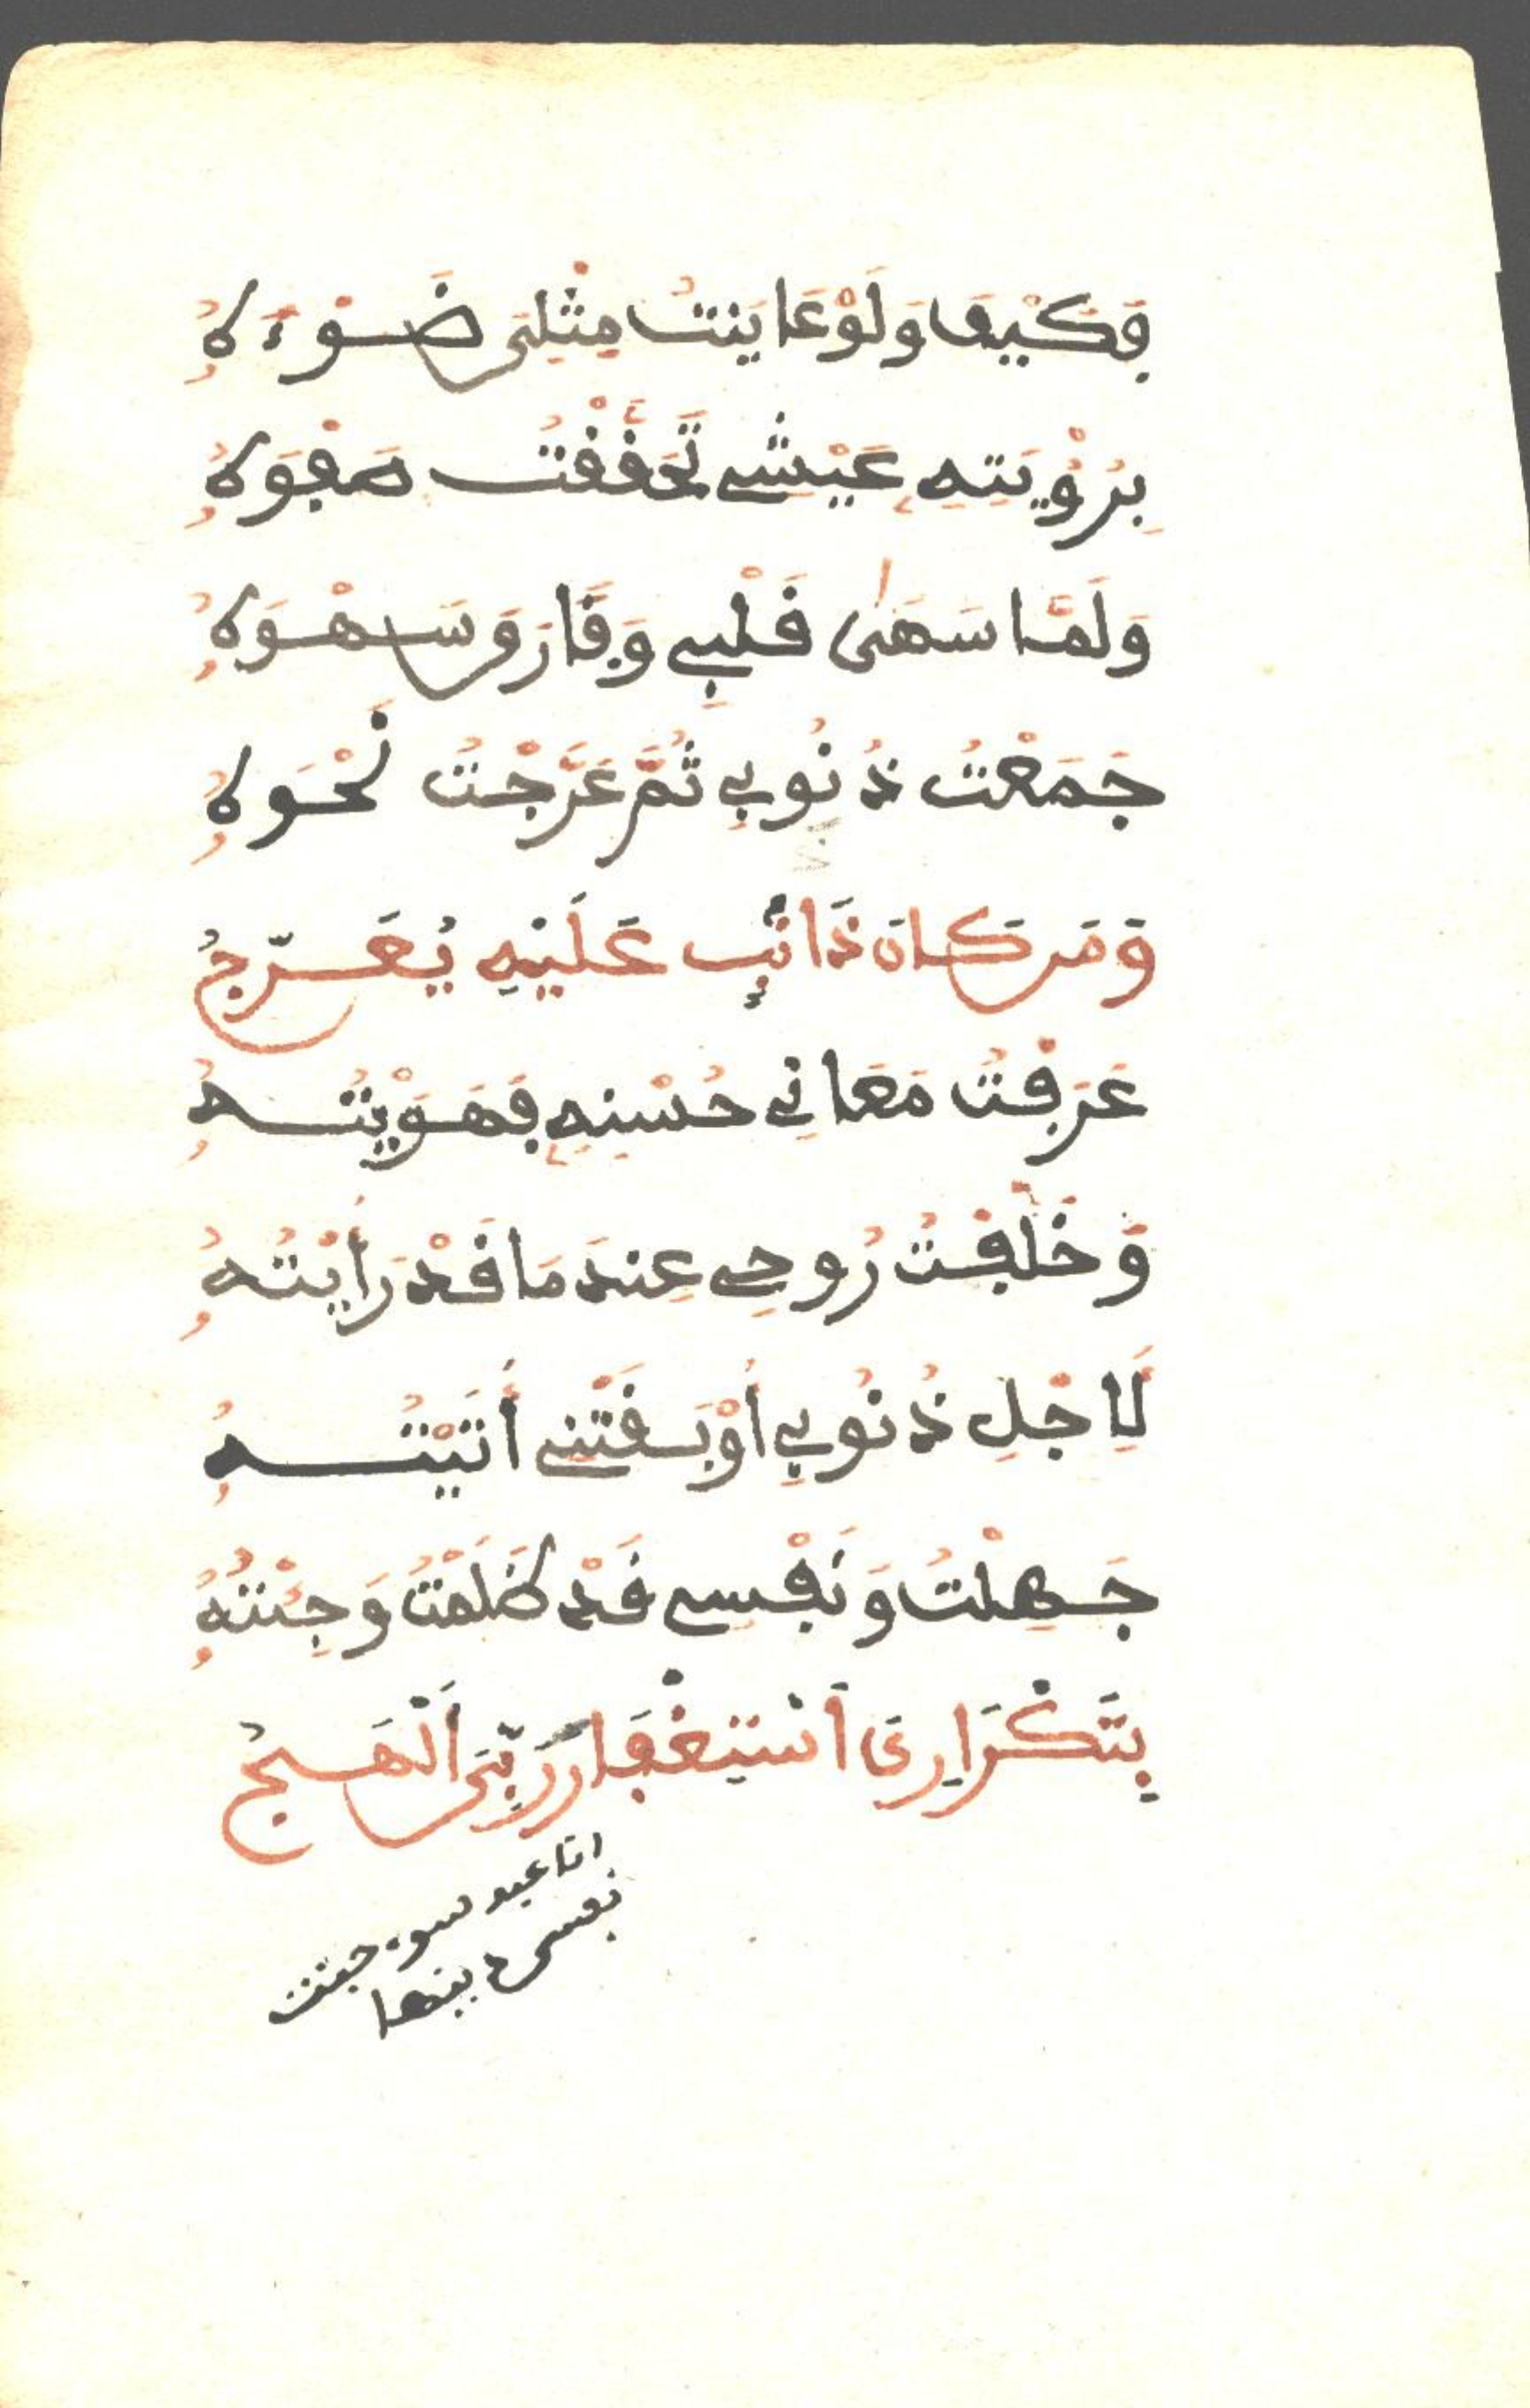 فَكَيْفَ وَلَوْ عَايَنتُ مِثْلِي ضَوْءَهُ
بِرُؤْيَتِهِ عَيْشِي تَحَقَّقْتُ صَفْوَهُ
وَلَمَّا سَهَىٰ قَلْبِي وَفَارَقَ سَهْوَهُ
جَمَعْتُ ذُنُوبِي ثُمَّ عَرَّجْتُ نَحْوَهُ
وَمَن كَانَ ذَا ذَنْبٍ عَلَيْهِ يُعَرِّجُ
عَرَفْتُ مَعَانِي حُسْنِهِ فَهَوَيْتُهُ
وَخَلَّفْتُ رُوحِي عِندَ مَا قَدْ رَأَيْتُهُ
لِأَجْلِ ذُنُوبِي أَوْبَقَتْنِي أَتَيْتُهُ
جَهِلْتُ وَنَفْسِي قَدْ ظَلَمْتُ وَجِئْتُهُ
بِتَكْرَارِي أَسْتِغْفَارَ رَبِّي أَلْهَجُ
انا عبد سوء جنت
نفسي